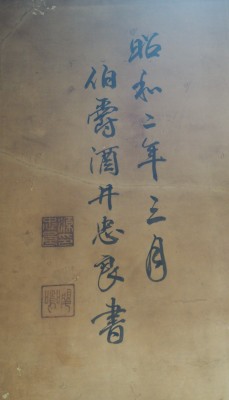 昭和二年三月
伯爵酒井忠良書